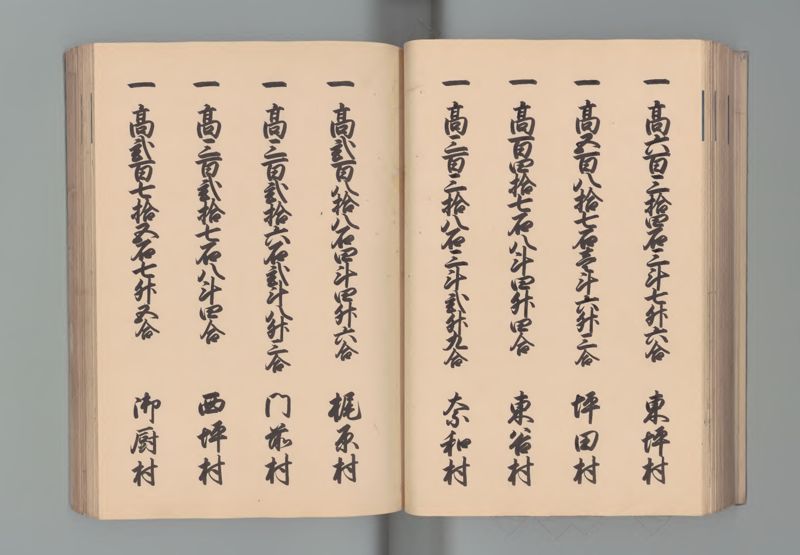 一 高六百三拾四石三斗七升六合 東坪村
一 高五百八拾七石壱斗六升三合 坪田村
一 高百四拾七石八斗四升四合 東谷村
一 高三百三拾八石三斗弐升九合 奈和村
一 高弐百八拾八石四斗四升六合 梶原村
一 高三百弐拾六石弐斗八升三合 門前村
一 高三百弐拾七石八斗四合 西坪村
一 高弐百七拾五石七升五合 御厨村